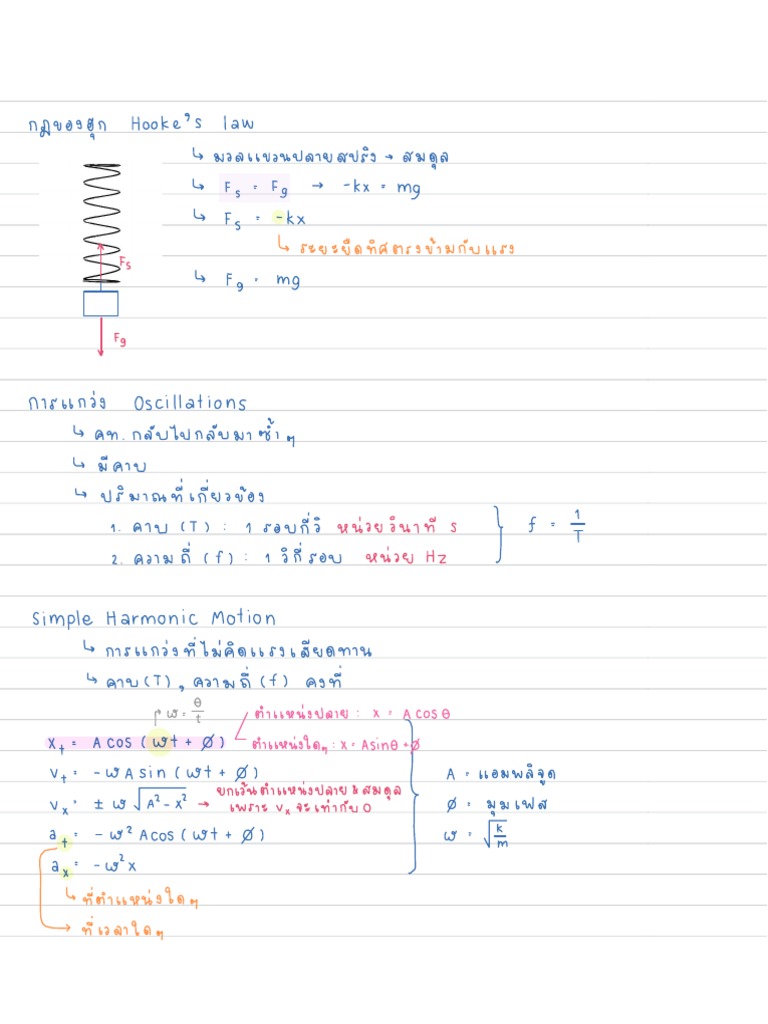 กฎของฮุก Hooke's law
↳ มวลแขวนปลายสปริง → สมดุล
↳ Fs = Fg → -kx = mg
↳ Fs = -kx
↳ ระยะยืดทิศตรงข้ามกับแรง
↳ Fg = mg
Fs
Fg
การแกว่ง Oscillations
↳ คท. กลับไปกลับมาซ้ำๆ
↳ มีคาบ
↳ ปริมาณที่เกี่ยวข้อง
1. คาบ (T) : 1 รอบกี่วิ หน่วยวินาที s
2. ความถี่ (f) : 1 วิกี่รอบ หน่วย Hz
f = 1/T
Simple Harmonic Motion
↳ การแกว่งที่ไม่คิดแรงเสียดทาน
↳ คาบ(T), ความถี่ (f) คงที่
ω = θ/t
ตำแหน่งปลาย : x = A cosθ
xt = A cos (ωt + ∅)
ตำแหน่งใดๆ : x = Asinθ + ∅
vt = -ωA sin (ωt + ∅)
vx = ± ω√(A² - x²) → ยกเว้นตำแหน่งปลาย & สมดุล
เพราะ vx จะเท่ากับ 0
at = -ω² A cos (ωt + ∅)
ax = -ω² x
A = แอมพลิจูด
∅ = มุมเฟส
ω = √(k/m)
↳ ที่ตำแหน่งใดๆ
→ ที่เวลาใดๆ